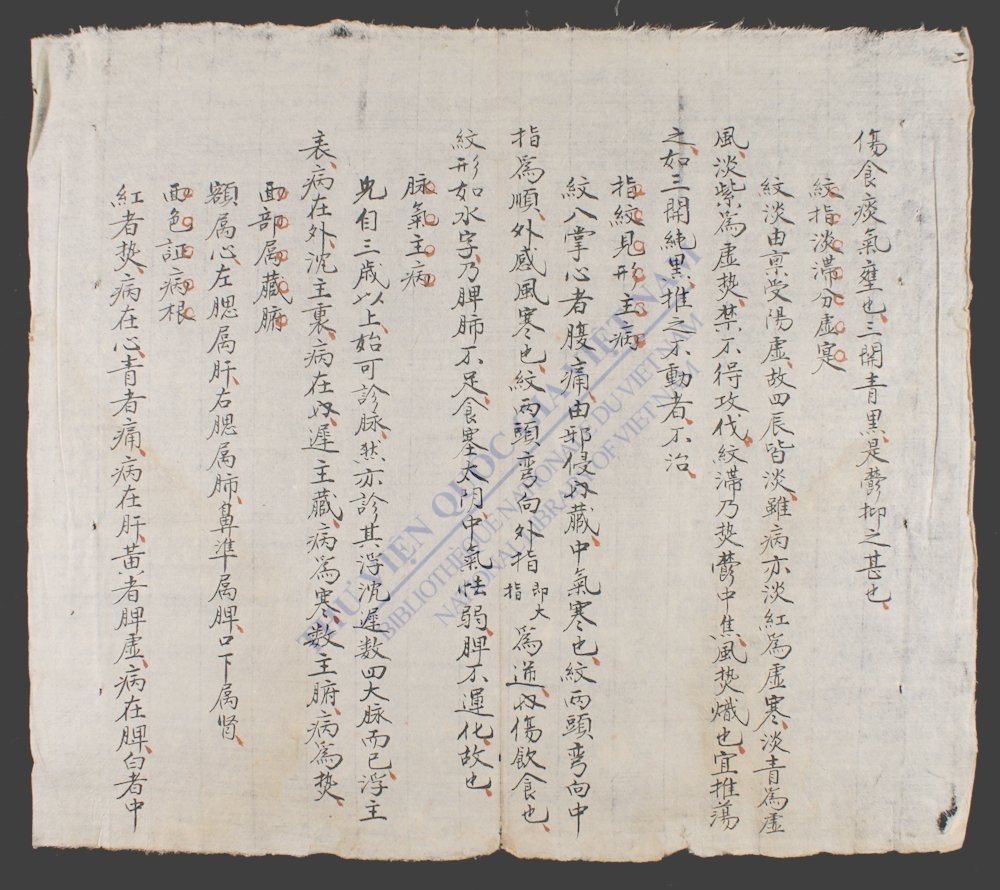 二
傷食痰氣壅也三關青黑是鬱抑之甚也
紋指淡滯分虛寔
紋淡由禀受陽虛故四辰皆淡雖病亦淡紅為虛寒淡青為虛
風淡紫為虛熱禁不得攻伐紋滯乃热鬱中焦風热熾也宜推蕩
之如三關純黑推之不動者不治
指紋見形主病
紋入掌心者腹痛由邪侵内藏中氣寒也紋兩頭弯向中
指為順外感風寒也紋兩頭弯向外指即大指為逆内傷飲食也
紋形如水字乃脾肺不足食塞太阴中氣怯弱脾不運化故也
脉氣主病
兒自三歲以上始可診脉然亦診其浮沈遲数四大脉而已浮主
表病在外沈主裏病在内遲主藏病為寒数主腑病為热
面部属藏腑
額属心左腮属肝右腮属肺鼻準属脾口下属肾
面色証病根
紅者热病在心青者痛病在肝黄者脾虛病在脾白者中
THƯ VIỆN QUỐC GIA VIỆT NAM
BIBLIOTHÈQUE NATIONALE DU VIETNAM
NATIONAL LIBRARY OF VIETNAM